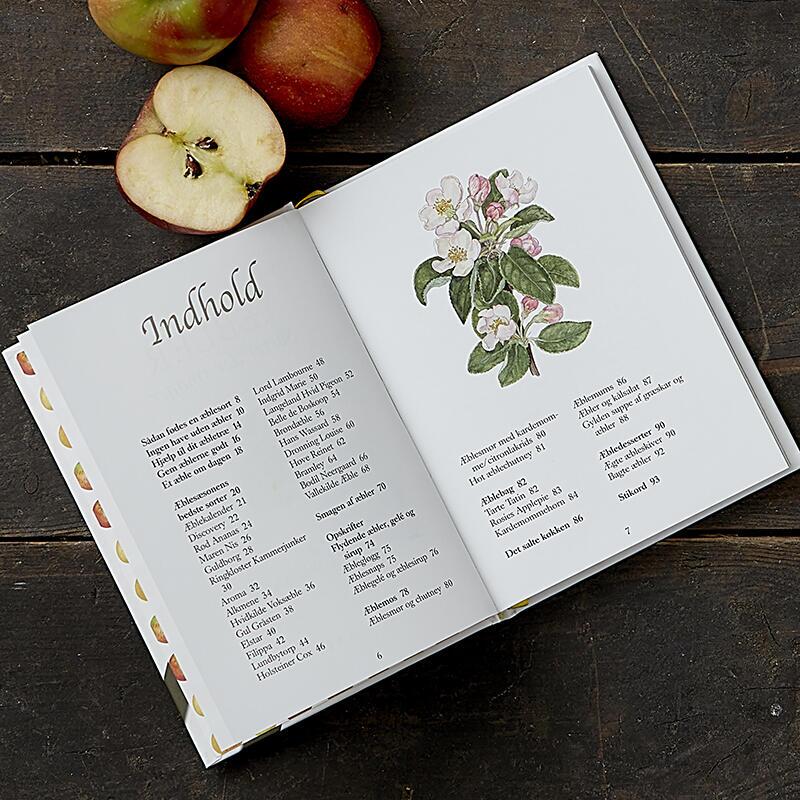 Indhold
Sådan fødes en æblesort 8
Ingen have uden æbler 10
Hjælp til dit æbletræ 14
Gem æblerne godt 16
Et æble om dagen 18
Æblesæsonens
bedste sorter 20
Æblekalender 21
Discovery 22
Rød Ananas 24
Maren Nis 26
Guldborg 28
Ringkloster Kammerjunker
30
Aroma 32
Alkmene 34
Hvidkilde Voksæble 36
Gul Gråsten 38
Elstar 40
Filippa 42
Lundbytorp 44
Holsteiner Cox 46
Lord Lambourne 48
Indgrid Marie 50
Langeland Hvid Pigeon 52
Belle de Boskoop 54
Brøndæble 56
Hans Wassard 58
Dronning Louise 60
Høve Reinet 62
Bramley 64
Bodil Neergaard 66
Vallekilde Æble 68
Smagen af æbler 70
Opskrifter
Flydende æbler, gelé og
sirup 74
Æblegløgg 75
Æblesnaps 75
Æblegelé og æblesirup 76
Æblemos 78
Æblesmør og chutney 80
6
Æblesmør med kardemom-
me/citronlakrids 80
Hot æblechutney 81
Æblebag 82
Tarte Tatin 82
Rosies Applepie 83
Kardemommehorn 84
Det salte køkken 86
Æblemums 86
Æbler og kålsalat 87
Gylden suppe af græskar og
æbler 88
Æbledesserter 90
Ægte æbleskiver 90
Bagte æbler 92
Stikord 93
7